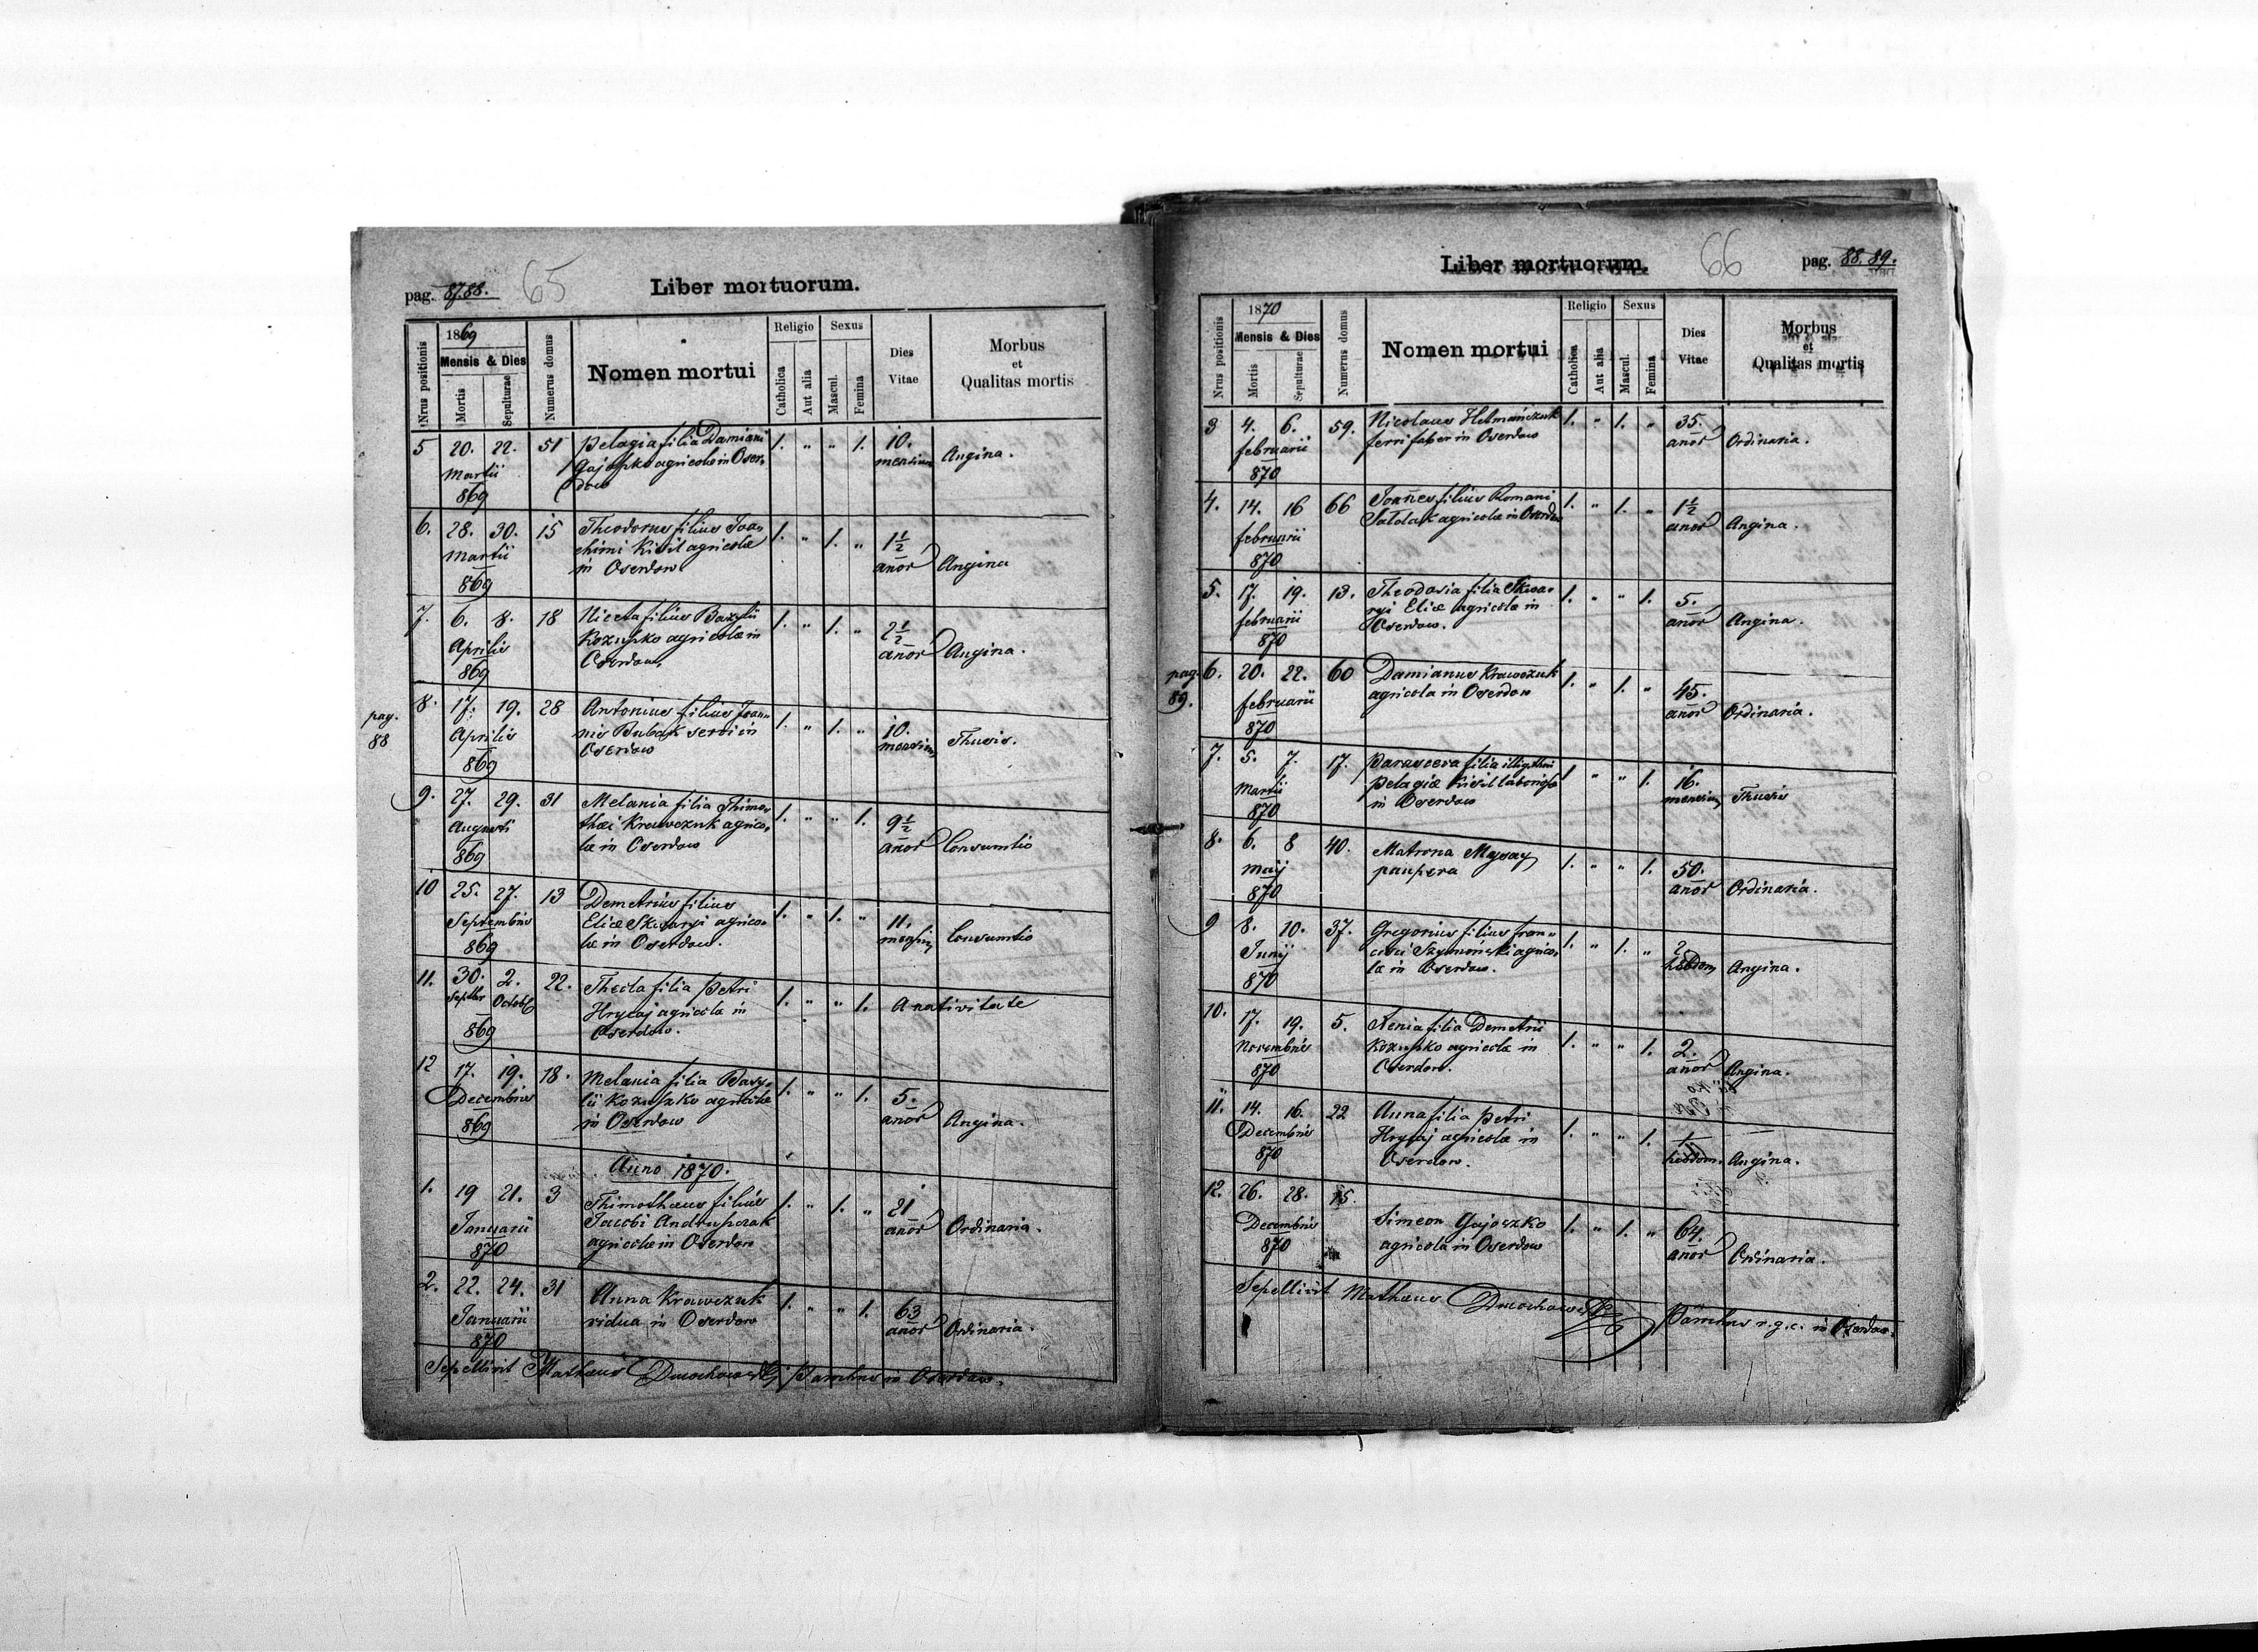 pag. 87.88. 65 Liber mortuorum.
Nrus positionis 1869 Mensis & Dies Mortis Sepulturae Numerus domus Nomen mortui Religio Catholica Aut alia Sexus Mascul. Femina Dies Vitae Morbus et Qualitas mortis
5 20. 22. 51 Pelagia filia Damiani 1. " " 1. 10.
Martii Gajoszko agricolae in Oser, mensium Angina.
869 dow
6. 28. 30. 15 Theodorus filius Joa,
Martii chimi Kisil agricolae 1. " 1. " 1½
869 in Oserdow anor Angina
7. 6. 8. 18 Niceta filius Bazylii 1. " 1. "
Aprilis Kozuszko agricolae in 2½
869 Oserdow, anor Angina.
pag. 88
8. 17. 19. 28 Antonius filius Joan,
Aprilis nis Bubak servi in 1. " 1. " 10.
869 Oserdow mensium Thusis.
9. 27. 29. 31 Melania filia Thimo,
Augusti thei Krawczuk agrico, 1. " " 1. 9½
869 lae in Oserdow anor Consumtio
10 25. 27. 13 Demetrius filius
Septembris Eliae Skwaryi agrico, 1. " 1. " 11.
869 lae in Oserdow. Consumtio
11. 30. 2. 22. Thecla filia Petri
Septbr Octob Hrycaj agricolae in 1. " " 1. A nativitate
869 Oserdow.
12 17. 19. 18. Melania filia Basy,
Decembris lii Kozuszko agricolae 1. " " 1. 5.
869 in Oserdow anor Angina.
Anno 1870.
1. 19 21. 3 Thimothaeus filius 1. " 1. " 21
Januarii Jacobi Andrupczak anor Ordinaria.
870 agricolae in Oserdow
2. 22. 24. 31 Anna Krawczuk 1. " " 1. 63
Januarii vidua in Oserdow anor Ordinaria.
870
Sepellivit Mathaeus Dmochowski Parochus in Oserdow.
Liber mortuorum. 66 pag. 88.89.
Nrus positionis 1870 Mensis & Dies Mortis Sepulturae Numerus domus Nomen mortui Religio Catholica Aut alia Sexus Mascul. Femina Dies Vitae Morbus et Qualitas mortis
3 4. 6. 59. Nicolaus Helmańczuk 1. " 1. " 35.
februarii ferri faber in Oserdow anor Ordinaria.
870
4. 14. 16 66 Joannes filius Romani 1. " 1. " 1½
februarii Sałdak agricolae in Oserdow anor Angina.
870
5. 17. 19. 13. Theodosia filia Skwa,
februarii ryi Eliae agricolae in 1. " " 1. 5.
870 Oserdow. anor Angina.
pag. 89.
6. 20. 22. 60 Damianus Krawczuk 1. " 1. " 45.
februarii agricola in Oserdow anor Ordinaria.
870
7. 5. 7. 17. Parasceva filia illigthmi
Martii Pelagiae Kisil 1. " " 1. 16.
870 in Oserdow mensium Thusis
8. 6. 8 40. Matrona Mysay 1. " " 1. 50.
Maij paupera anor Ordinaria.
870
9 8. 10. 37. Gregorius filius fran,
Junij cisci Szymoński agrico, 1. " 1. " 2
870 lae in Oserdow. hebdom Angina.
10. 17. 19. 5. Xenia filia Demetrii
Novembris Kozuszko agricolae in 1. " " 1. 2.
870 Oserdow. anor Angina.
11. 14. 16. 22 Anna filia Petri
Decembris Hrycaj agricolae in 1. " " 1. 1
870 Oserdow. hebdom. Angina.
12. 26. 28. 15. Simeon Gajoszko 1. " 1. " 64.
Decembris agricola in Oserdow anor Ordinaria.
870
Sepellivit Mathaeus Dmochowski Parochus r.g.c. in Oserdow.